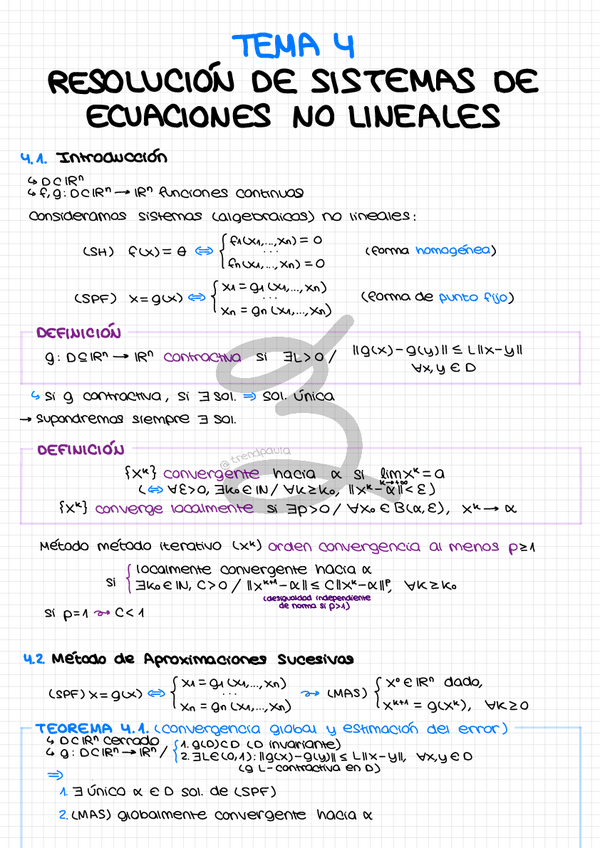 TEMA 4
RESOLUCIÓN DE SISTEMAS DE
ECUACIONES NO LINEALES
4.1. Introducción
↳ D⊂ℝⁿ
↳ f, g: D⊂ℝⁿ → ℝⁿ funciones continuas
Consideramos sistemas (algebraicos) no lineales:
(SH) f(x) = θ ⇔ { f1(x1,...,xn) = 0
...
fn(x1,...,xn) = 0
(forma homogénea)
(SPF) x = g(x) ⇔ { x1 = g1(x1,...,xn)
...
xn = gn(x1,...,xn)
(forma de punto fijo)
DEFINICIÓN
g: D⊆ℝⁿ → ℝⁿ contractiva si ∃L>0 / ||g(x)-g(y)|| ≤ L||x-y||
∀x,y ∈ D
↳ Si g contractiva, si ∃ sol. ⇒ sol. única
→ Supondremos siempre ∃ sol.
@trendpaula
DEFINICIÓN
{xᵏ} convergente hacia α si lim xᵏ = a
k→+∞
(⇔ ∀ε>0, ∃k₀∈ℕ / ∀k≥k₀, ||xᵏ-α||<ε)
{xᵏ} converge localmente si ∃ρ>0 / ∀x₀∈B(α,ε), xᵏ → α
Método método iterativo (xᵏ) orden convergencia al menos p≥1
si { localmente convergente hacia α
∃k₀∈ℕ, C>0 / ||xᵏ⁺¹-α|| ≤ C||xᵏ-α||ᵖ, ∀k≥k₀
(desigualdad independiente
de norma si p>1)
Si p=1 ⇝ C<1
4.2. Método de Aproximaciones Sucesivas
(SPF) x = g(x) ⇔ { x1 = g1(x1,...,xn)
...
xn = gn(x1,...,xn)
⇝ (MAS) { x⁰ ∈ ℝⁿ dado,
xᵏ⁺¹ = g(xᵏ), ∀k≥0
TEOREMA 4.1. (convergencia global y estimación del error)
↳ D⊂ℝⁿ cerrado
↳ g: D⊂ℝⁿ → ℝⁿ / { 1. g(D)⊂D (D invariante)
2. ∃L∈(0,1): ||g(x)-g(y)|| ≤ L||x-y||, ∀x,y∈D
(g L-contractiva en D)
⇒
1. ∃ único α ∈ D sol. de (SPF)
2. (MAS) globalmente convergente hacia α